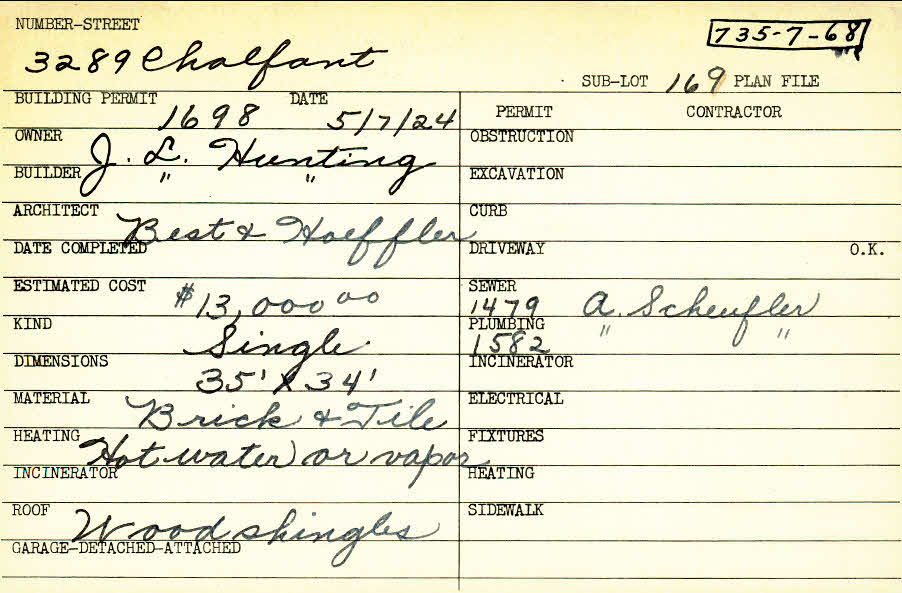 NUMBER-STREET
735-7-68
3289 Chalfant
SUB-LOT 169 PLAN FILE
BUILDING PERMIT 1698 DATE 5/7/24
PERMIT CONTRACTOR
OWNER J. L. Hunting
OBSTRUCTION
BUILDER " "
EXCAVATION
ARCHITECT Best & Hoeffler
CURB
DATE COMPLETED
DRIVEWAY O.K.
ESTIMATED COST $13,000 00
SEWER 1479 A. Scheufler
KIND Single
PLUMBING 1582 " "
DIMENSIONS 35' X 34'
INCINERATOR
MATERIAL Brick & Tile
ELECTRICAL
HEATING Hot water or vapor
FIXTURES
INCINERATOR
HEATING
ROOF Wood shingles
SIDEWALK
GARAGE-DETACHED-ATTACHED